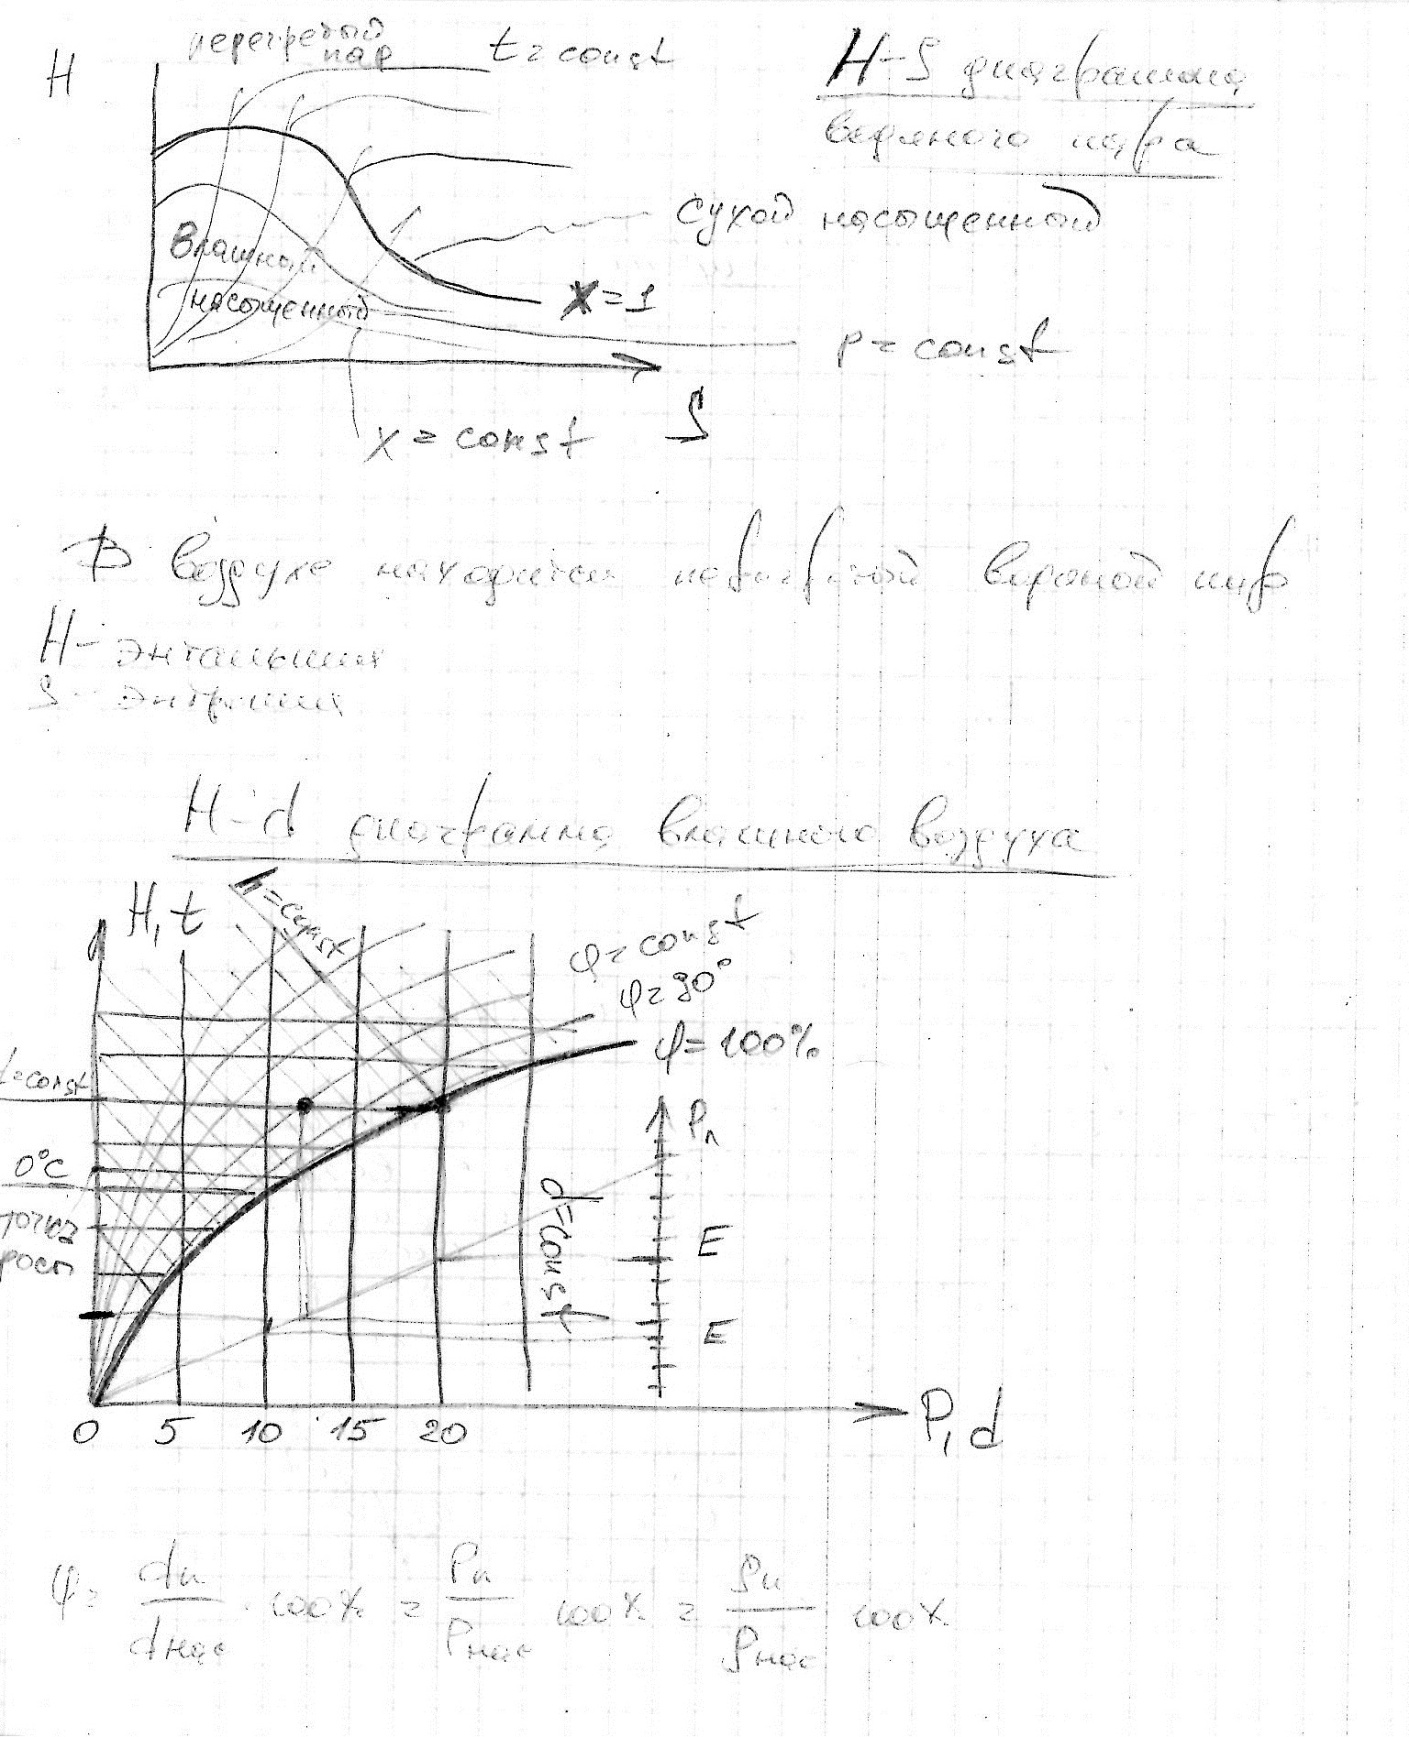 H
перегретый
пар
t = const
H-S диаграмма
водяного пара
Влажный
насыщенный
сухой насыщенный
X=1
p = const
x = const
S
В воздухе находится перегретый водяной пар
H - энтальпия
S - энтропия
H-d диаграмма влажного воздуха
H, t
H=const
φ = const
φ = 90°
φ = 100%
t=const
0°C
точка
росы
d=const
Pп
E
E
0 5 10 15 20
P, d
φ = dп/dнас · 100% = Pп/Pнас 100% = ρп/ρнас 100%